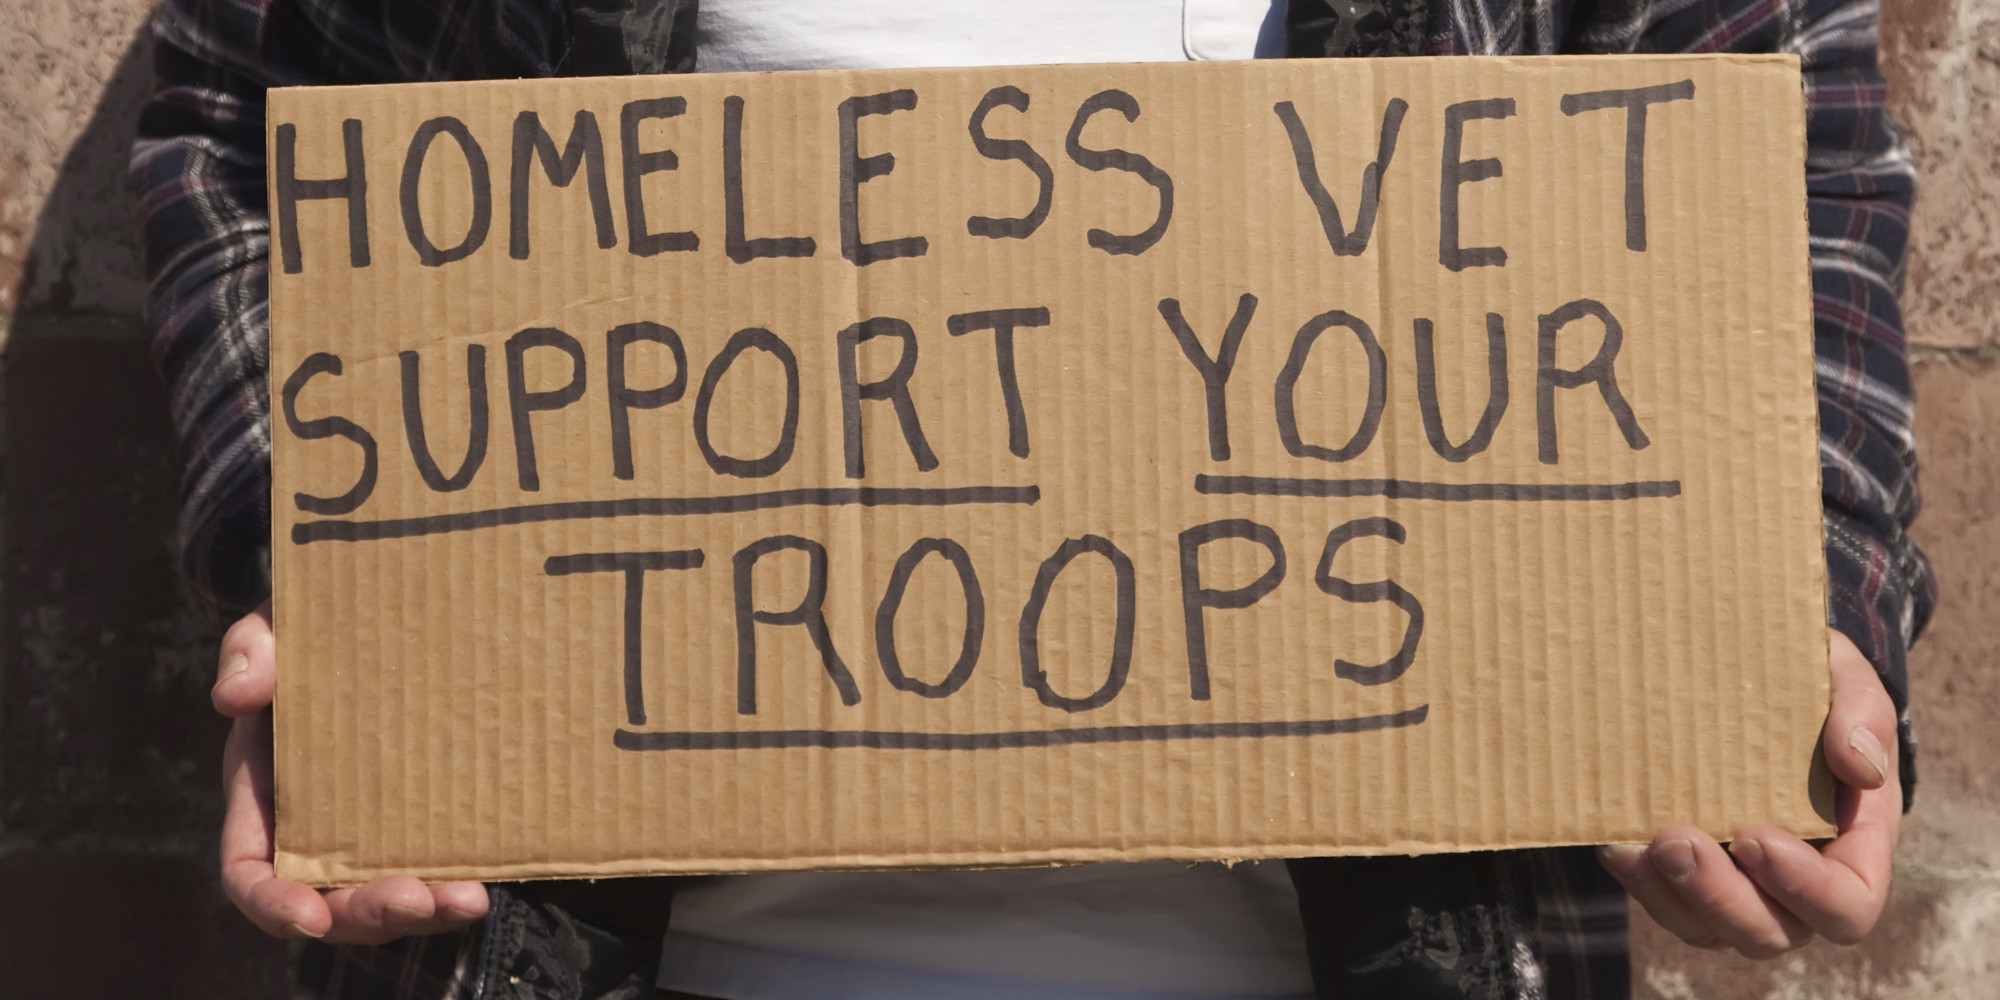 HOMELESS VET
SUPPORT YOUR
TROOPS